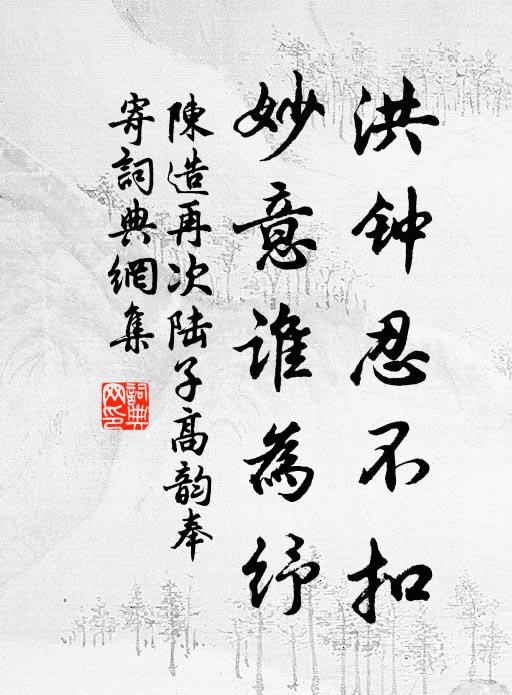 洪钟忍不扣
妙意谁為纾
陳造再次陆子高韵奉
寄詞典網集
詞典网印